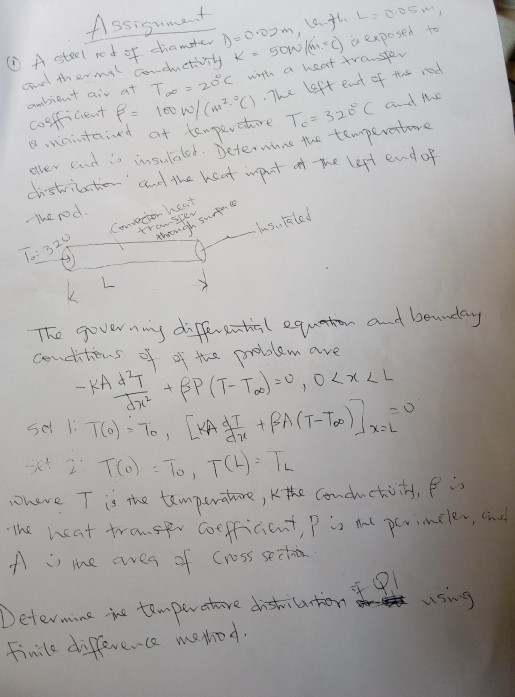 Assignment
① A steel rod of diameter D=0.02m, length L=0.05m,
and thermal conductivity K = 50W/(m.°C) is exposed to
ambient air at T∞ = 20°C with a heat transfer
coefficient β = 100W/(m².°C). The left end of the rod
is maintained at temperature To = 320°C and the
other end is insulated. Determine the temperature
distribution and the heat input at the left end of
the rod.
Convection heat
transfer
through surface
Insulated
To: 320
L
The governing differential equation and boundary
conditions of of the problem are
-KA d²T/dx² + βP(T-T∞)=0, 0<x<L
set 1: T(0) = To, [KA dT/dx + βA(T-T∞)]x=L = 0
set 2: T(0) = To, T(L) = TL
where T is the temperature, K the conductivity, β is
the heat transfer coefficient, P is the perimeter, and
A is the area of cross section.
Determine the temperature distribution of Q1 using
finite difference method.